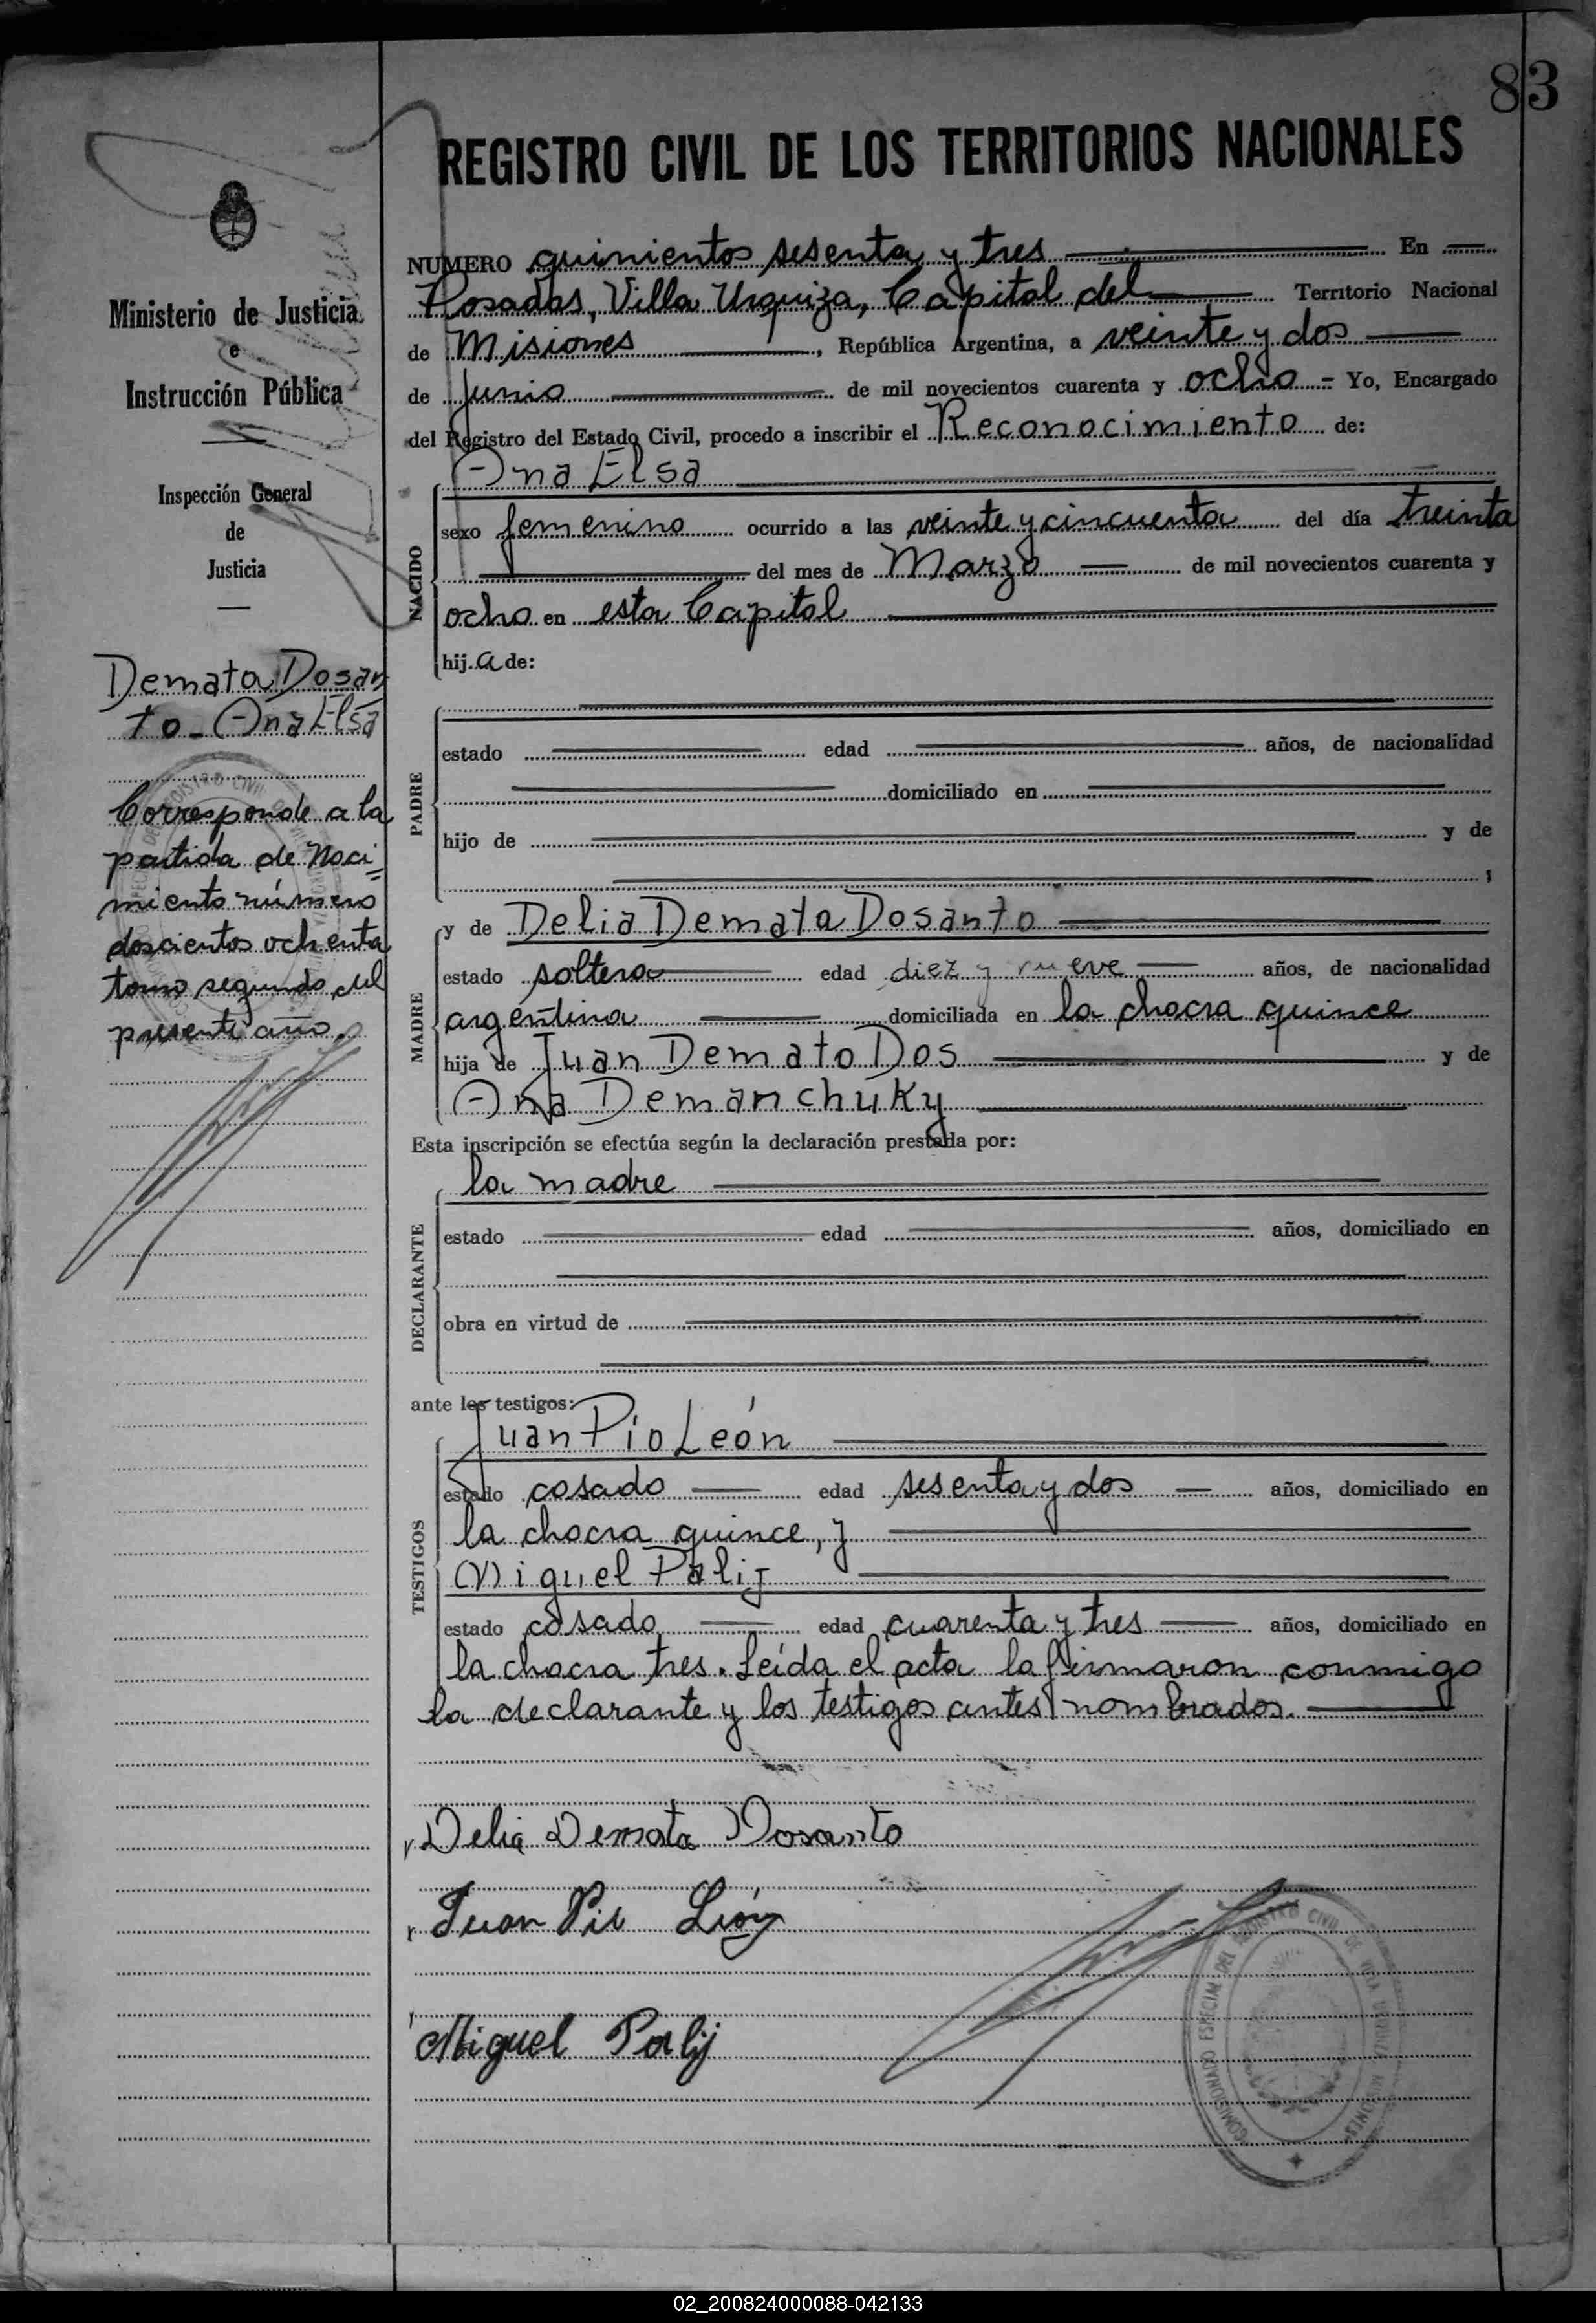 83
REGISTRO CIVIL DE LOS TERRITORIOS NACIONALES
Ministerio de Justicia
e
Instrucción Pública
Inspección General
de
Justicia
Demata Dosan
to - Ana Elsa
Corresponde a la
partida de Naci=
miento número
doscientos ochenta
tomo segundo del
presente año.
NUMERO quinientos sesenta y tres En
Posadas, Villa Urquiza, Capital del Territorio Nacional
de Misiones, República Argentina, a veinte y dos
de Junio de mil novecientos cuarenta y ocho = Yo, Encargado
del Registro del Estado Civil, procedo a inscribir el Reconocimiento de:
Ana Elsa
NACIDO
sexo femenino ocurrido a las veinte y cincuenta del día treinta
del mes de Marzo de mil novecientos cuarenta y
ocho en esta Capital
hij.a de:
PADRE
estado edad años, de nacionalidad
domiciliado en
hijo de y de
;
MADRE
y de Delia Demata Dosanto
estado soltera edad diez y nueve años, de nacionalidad
argentina domiciliada en la chacra quince
hija de Juan Demato Dos y de
Ana Demanchuky
Esta inscripción se efectúa según la declaración prestada por:
la madre
DECLARANTE
estado edad años, domiciliado en
obra en virtud de
ante los testigos:
Juan Pío León
TESTIGOS
estado casado edad sesenta y dos años, domiciliado en
la chacra quince, y
Miguel Palij
estado casado edad cuarenta y tres años, domiciliado en
la chacra tres. Leída el acta la firmaron conmigo
la declarante y los testigos antes nombrados.
Delia Demata Dosanto
Juan Pio León
Miguel Palij
COMISIONADO ESPECIAL DEL REGISTRO CIVIL DE VILLA URQUIZA MISIONES
02_200824000088-042133